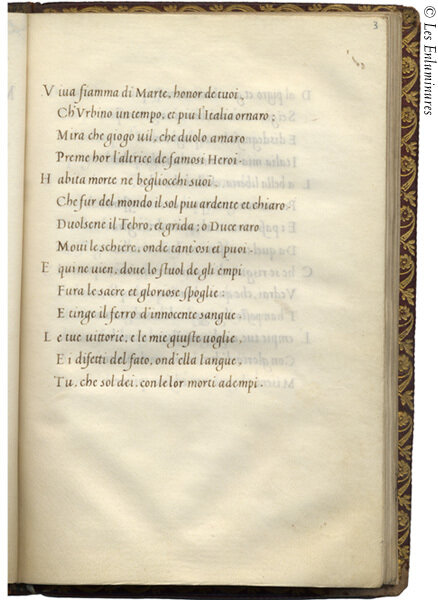 3
V iua fiamma di Marte, honor de tuoi,
Ch'Vrbino un tempo, et piu l'Italia ornaro;
Mira che giogo uil, che duolo amaro
Preme hor l'altrice de famosi Heroi.
H abita morte ne begliocchi suoi
Che fur del mondo il sol piu ardente et chiaro.
Duolsene il Tebro, et grida; o Duce raro
Moui le schiere, onde tant'osi et puoi.
E qui ne uien, doue lo stuol de gli empi
Fura le sacre et gloriose spoglie
E tinge il ferro d'innocente sangue.
L e tue uittorie, e le mie giuste uoglie,
E i difetti del fato, ond'ella langue,
Tu, che sol dei, con le lor morti adempi.
© Les Enluminures